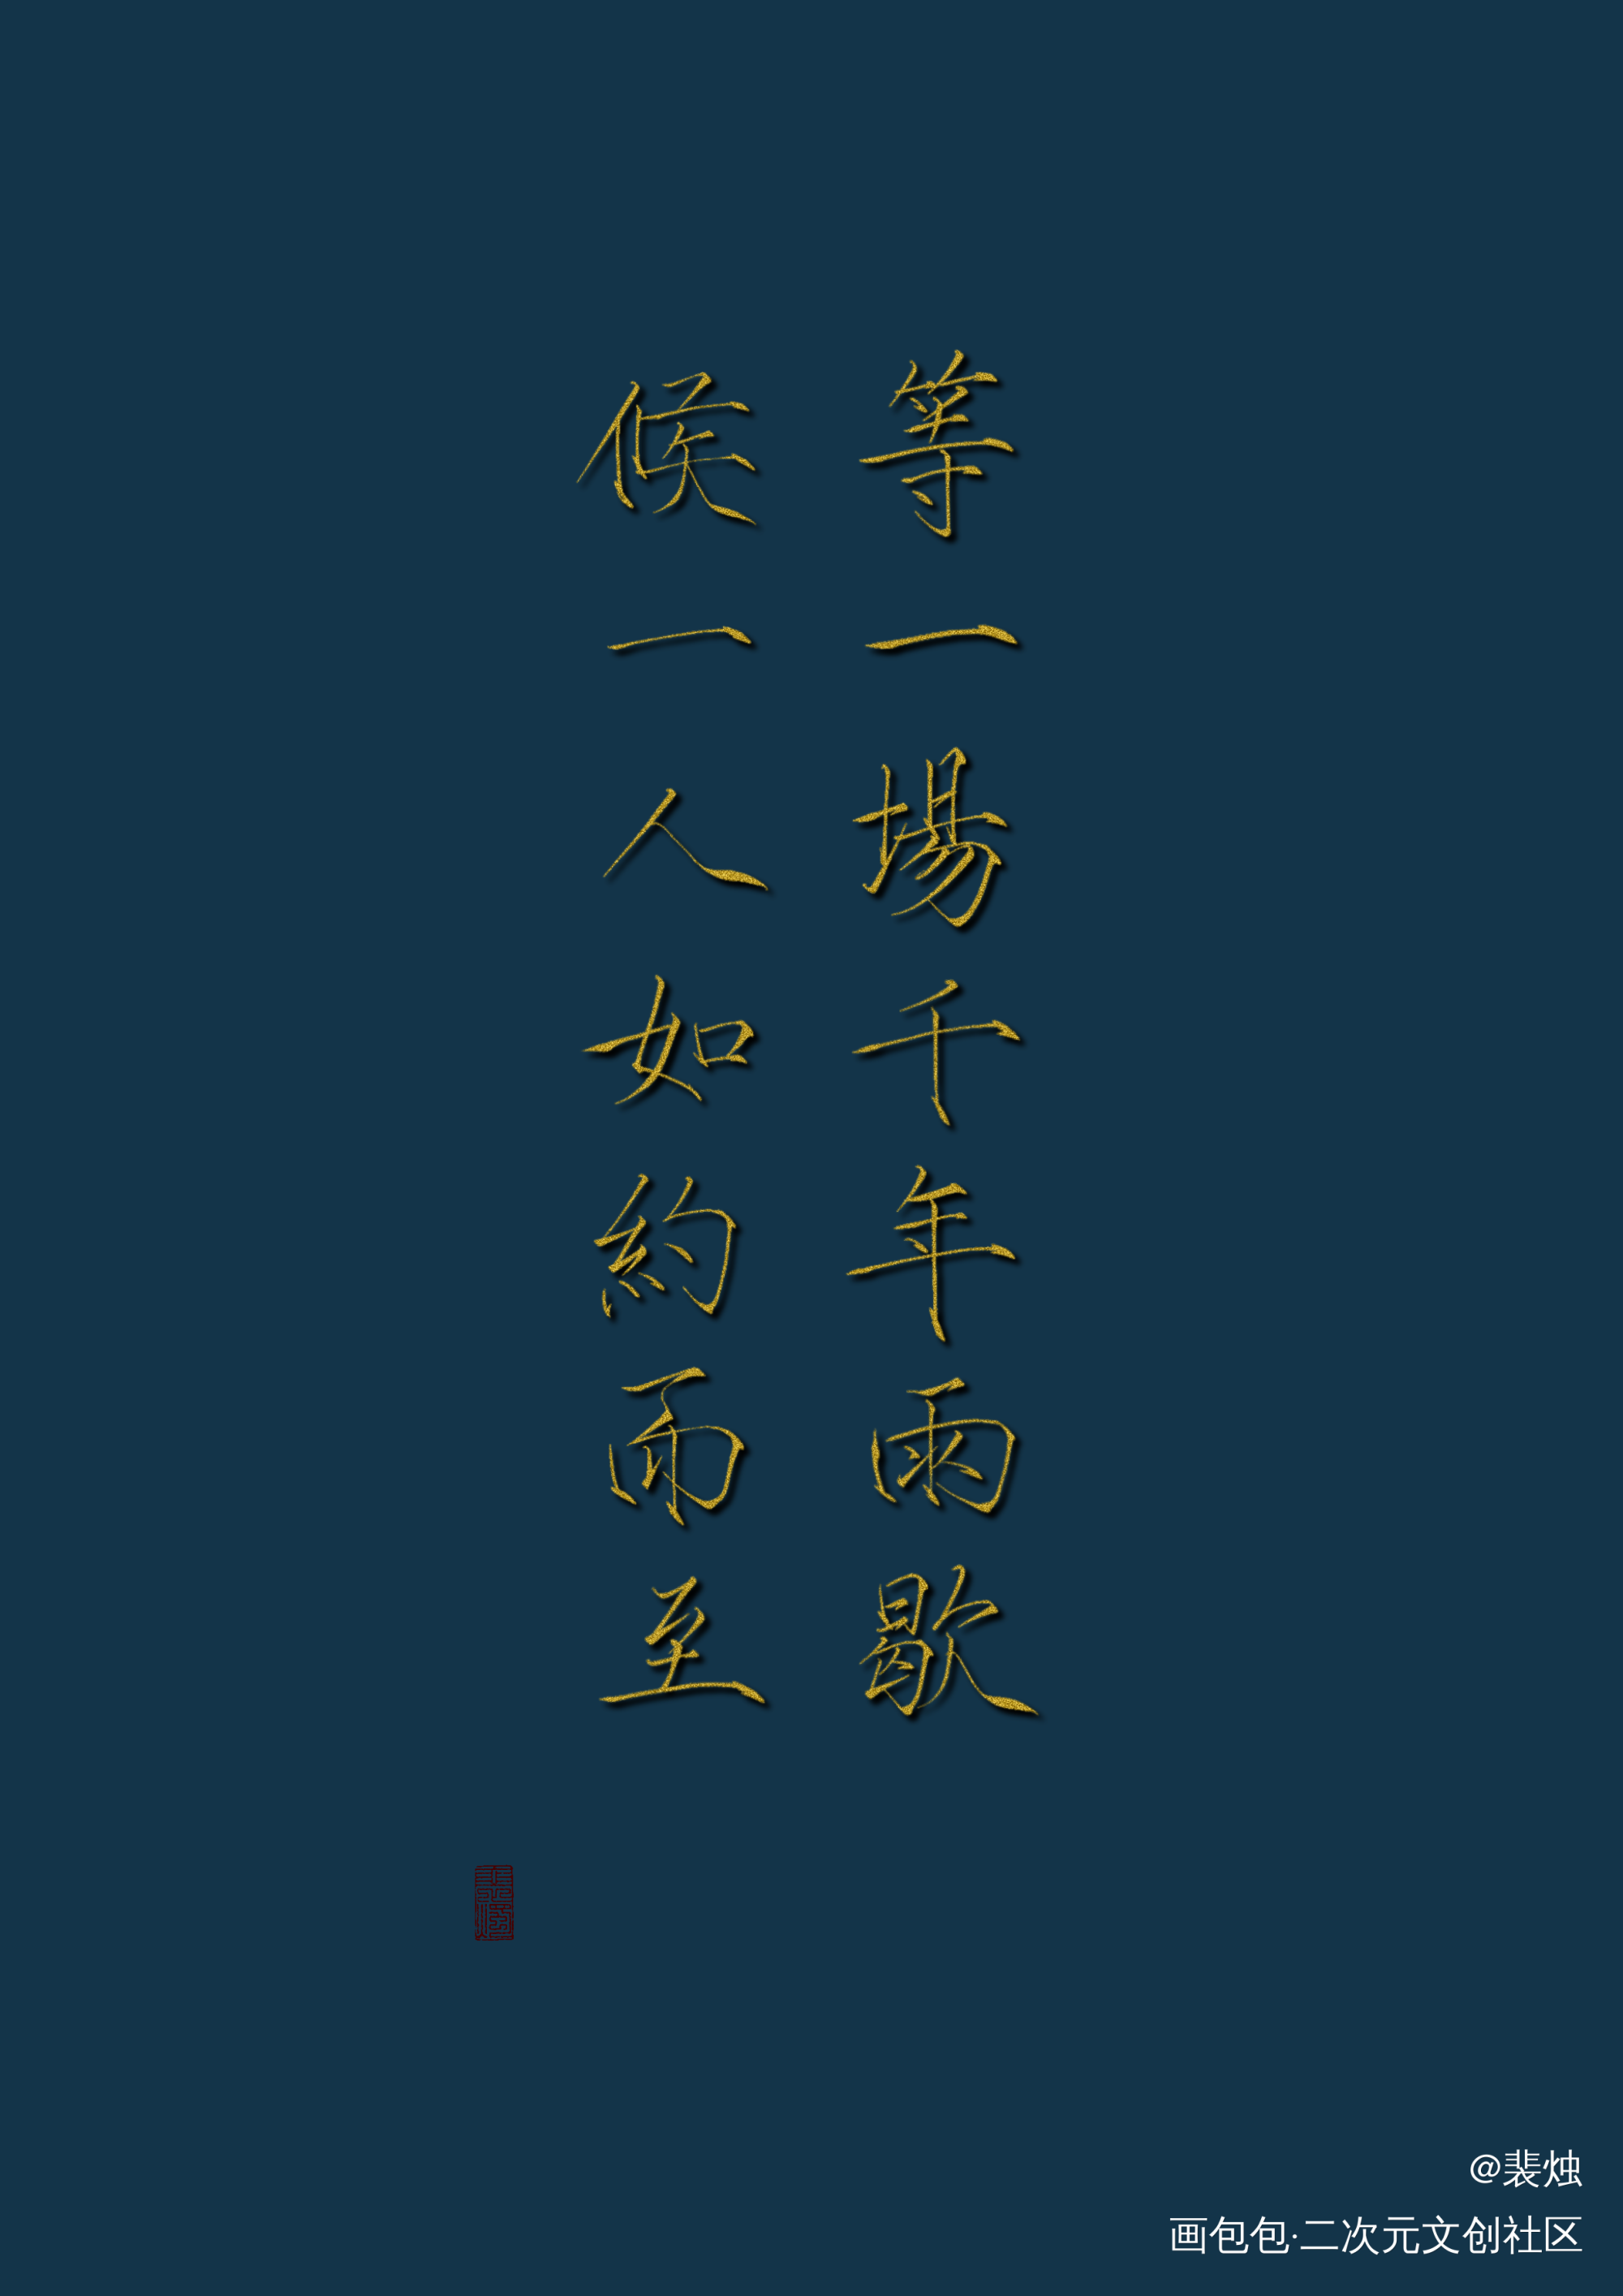 等一場千年雨歇
候一人如約而至
@裴烛
画包包·二次元文创社区